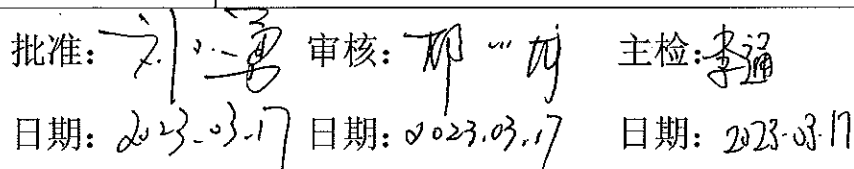 批准：刘小勇 审核： 主检：李通
日期：2023.03.17 日期：2023.03.17 日期：2023.03.17